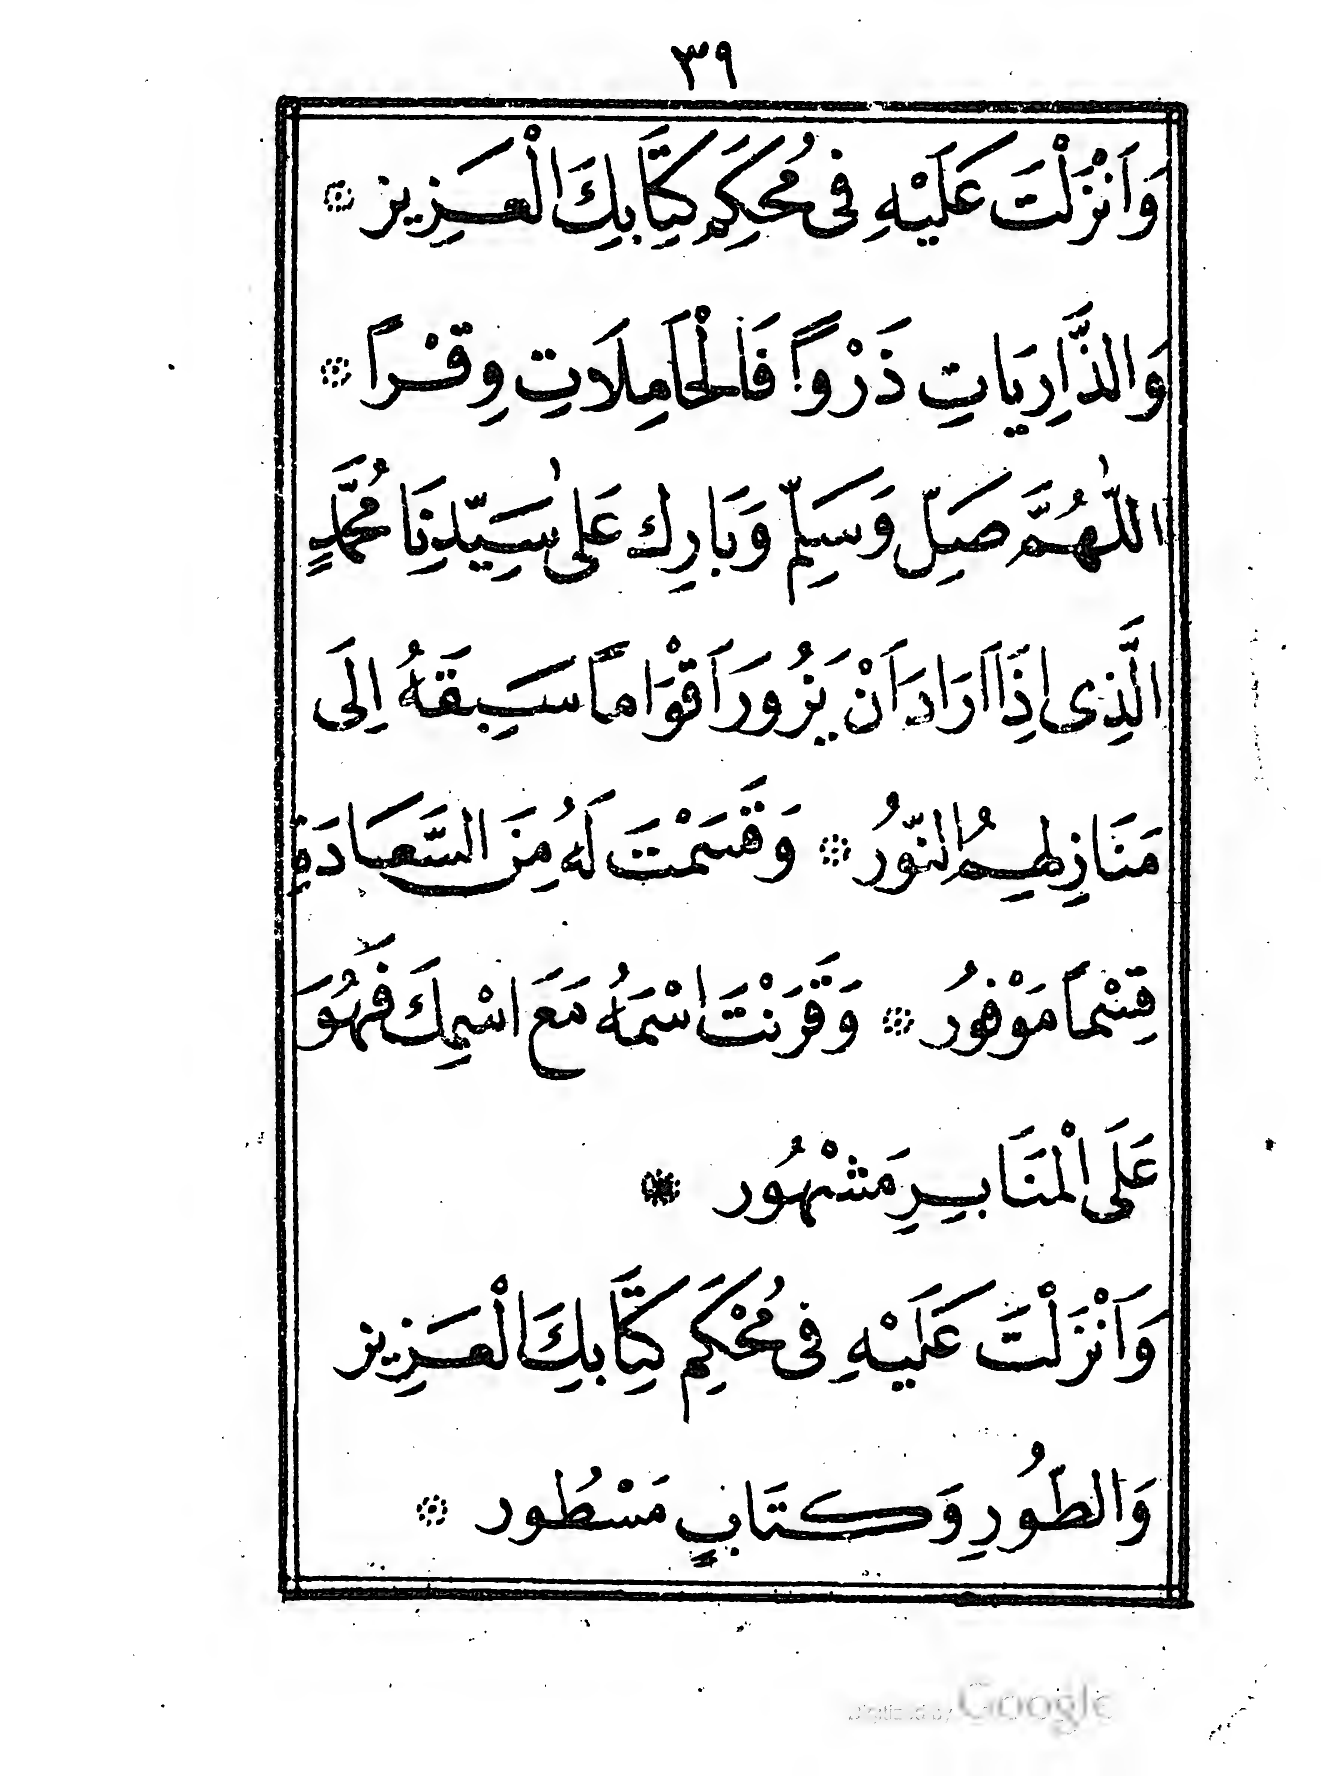 ٣٩
وَاَنْزَلْتَ عَلَيْهِ فِى مُحْكَمِ كِتَابِكَ الْعَزِيزِ ۞
وَالذَّارِيَاتِ ذَرْوًا فَالْحَامِلَاتِ وِقْرًا ۞
اللّٰهُمَّ صَلِّ وَسَلِّمْ وَبَارِكْ عَلٰى سَيِّدِنَا مُحَمَّدٍ
الَّذِى اِذَا اَرَادَ اَنْ يَزُورَ اَقْوَامًا سَبَقَهُ اِلَى
مَنَازِلِهِمُ النُّورُ ۞ وَقَسَمْتَ لَهُ مِنَ السَّعَادَةِ
قِسْمًا مَوْفُورُ ۞ وَقَرَنْتَ اسْمَهُ مَعَ اسْمِكَ فَهُوَ
عَلَى الْمَنَابِرِ مَشْهُور ۞
وَاَنْزَلْتَ عَلَيْهِ فِى مُحْكَمِ كِتَابِكَ الْعَزِيزِ
وَالطُّورِ وَكِتَابٍ مَسْطُور ۞
Digitized by Google